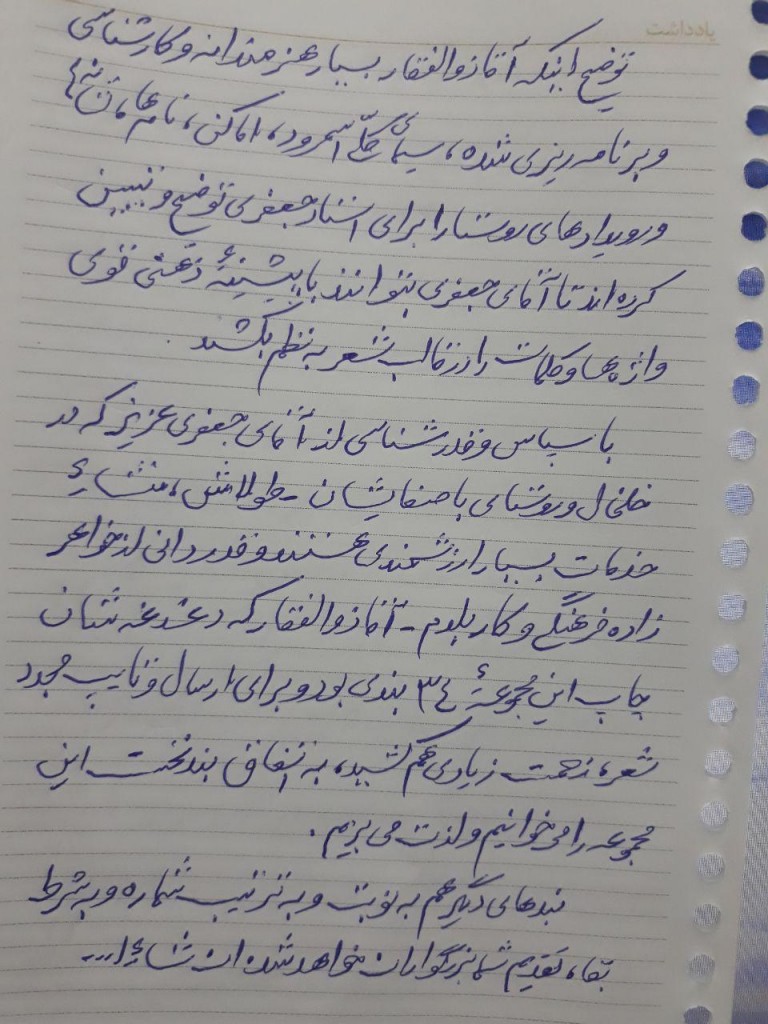 یادداشت
توضیح اینکه آقا ذوالفقار بسیار هنرمندانه و کارشناسی
و برنامه ریزی شده، سیمای کلّی اسمرود، اماکن، نام‌ها،
و رویدادهای روستا را برای استاد جعفری توضیح و تبیین
کرده اند تا آقای جعفری بتوانند با پیشینهٔ ذهنی قوی
واژه ها و کلمات را در قالب شعر به نظم بکشند.
با سپاس و قدرشناسی از آقای جعفری عزیز که در
خلخال و روستای باصفایشان - طولاش، منشاءِ
خدمات بسیار ارزشمندی هستند و قدردانی از خواهر
زاده فرهنگی و کاربلدم - آقا ذوالفقار که دغدغه شان
چاپ این مجموعهٔ ۳۴ بندی بود و برای ارسال و تایپ مجدد
شعر، زحمت زیادی هم کشید، به اتفاق بند نخست این
مجموعه را می خوانیم و لذت می بریم.
بندهای دیگر هم به نوبت و به ترتیب شماره و به شرط
بقا، تقدیم شما بزرگواران خواهد شد ان شاءا...